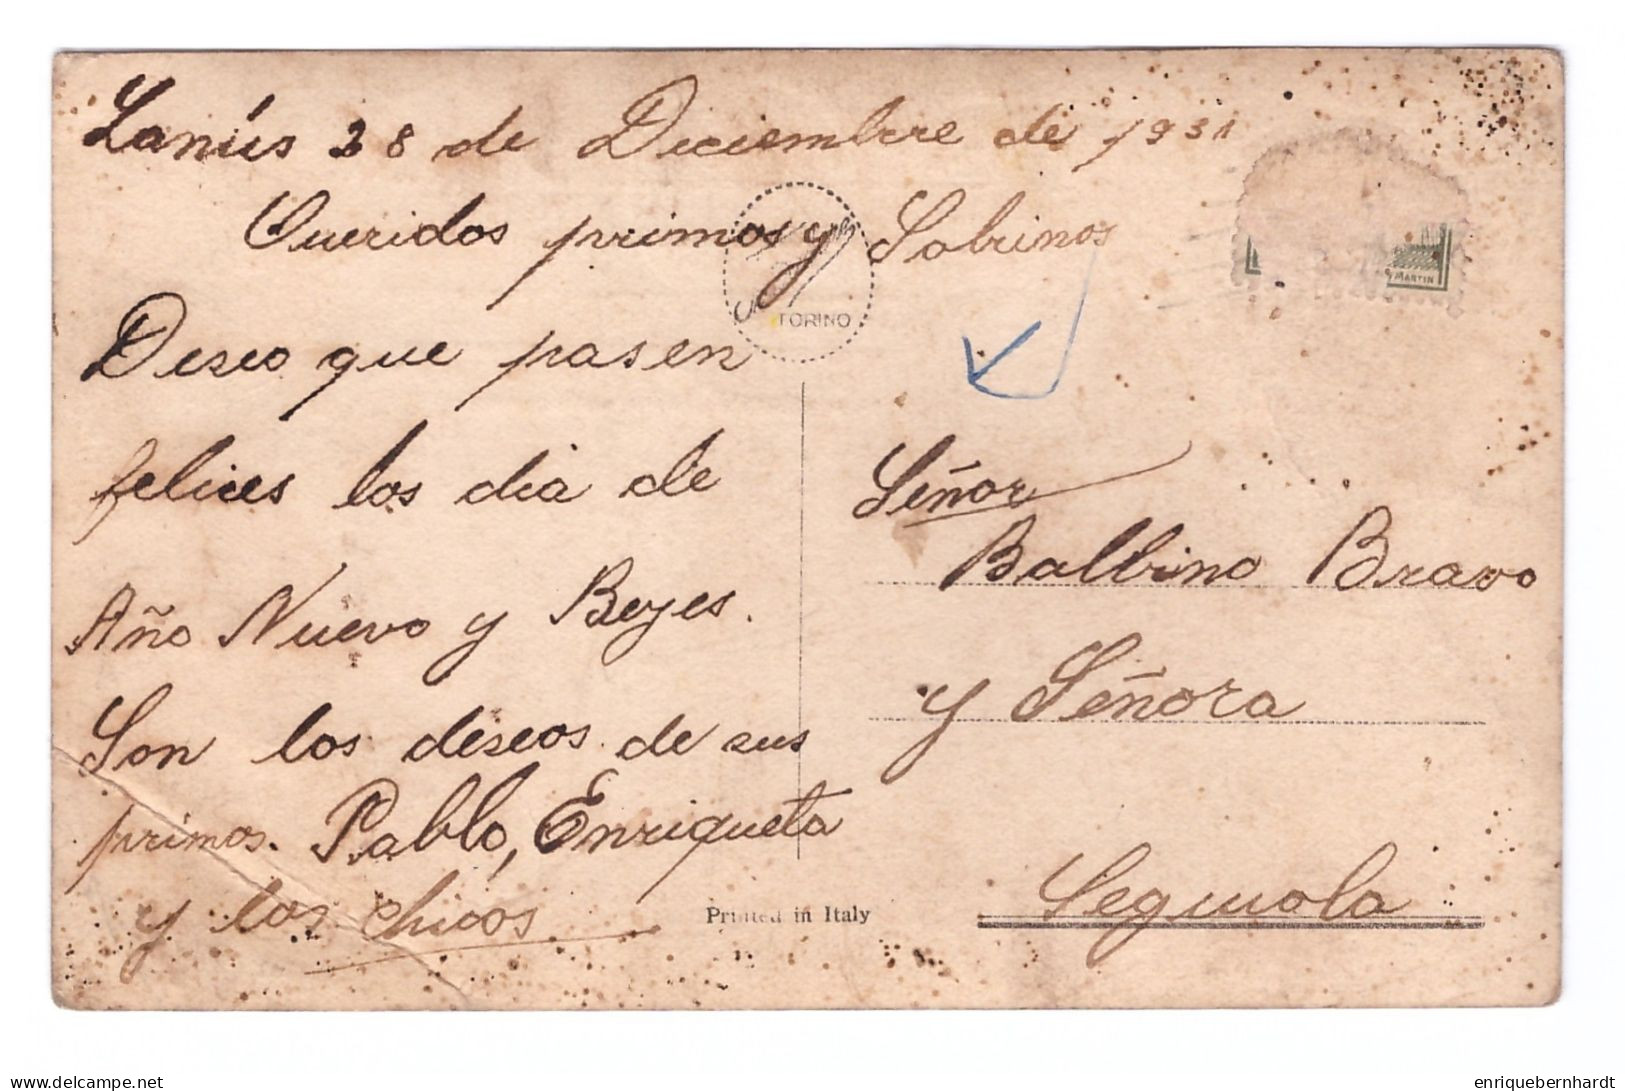 Lanús 28 de Diciembre de 1931
Queridos primos y Sobrinos
Deseo que pasen
felices los dia de
Año Nuevo y Reyes.
Son los deseos de sus
primos. Pablo, Enriqueta
y los chicos
TORINO
MARTIN
Señor
Balbino Bravo
y Señora
Seguiola
Printed in Italy
enriquebernhardt